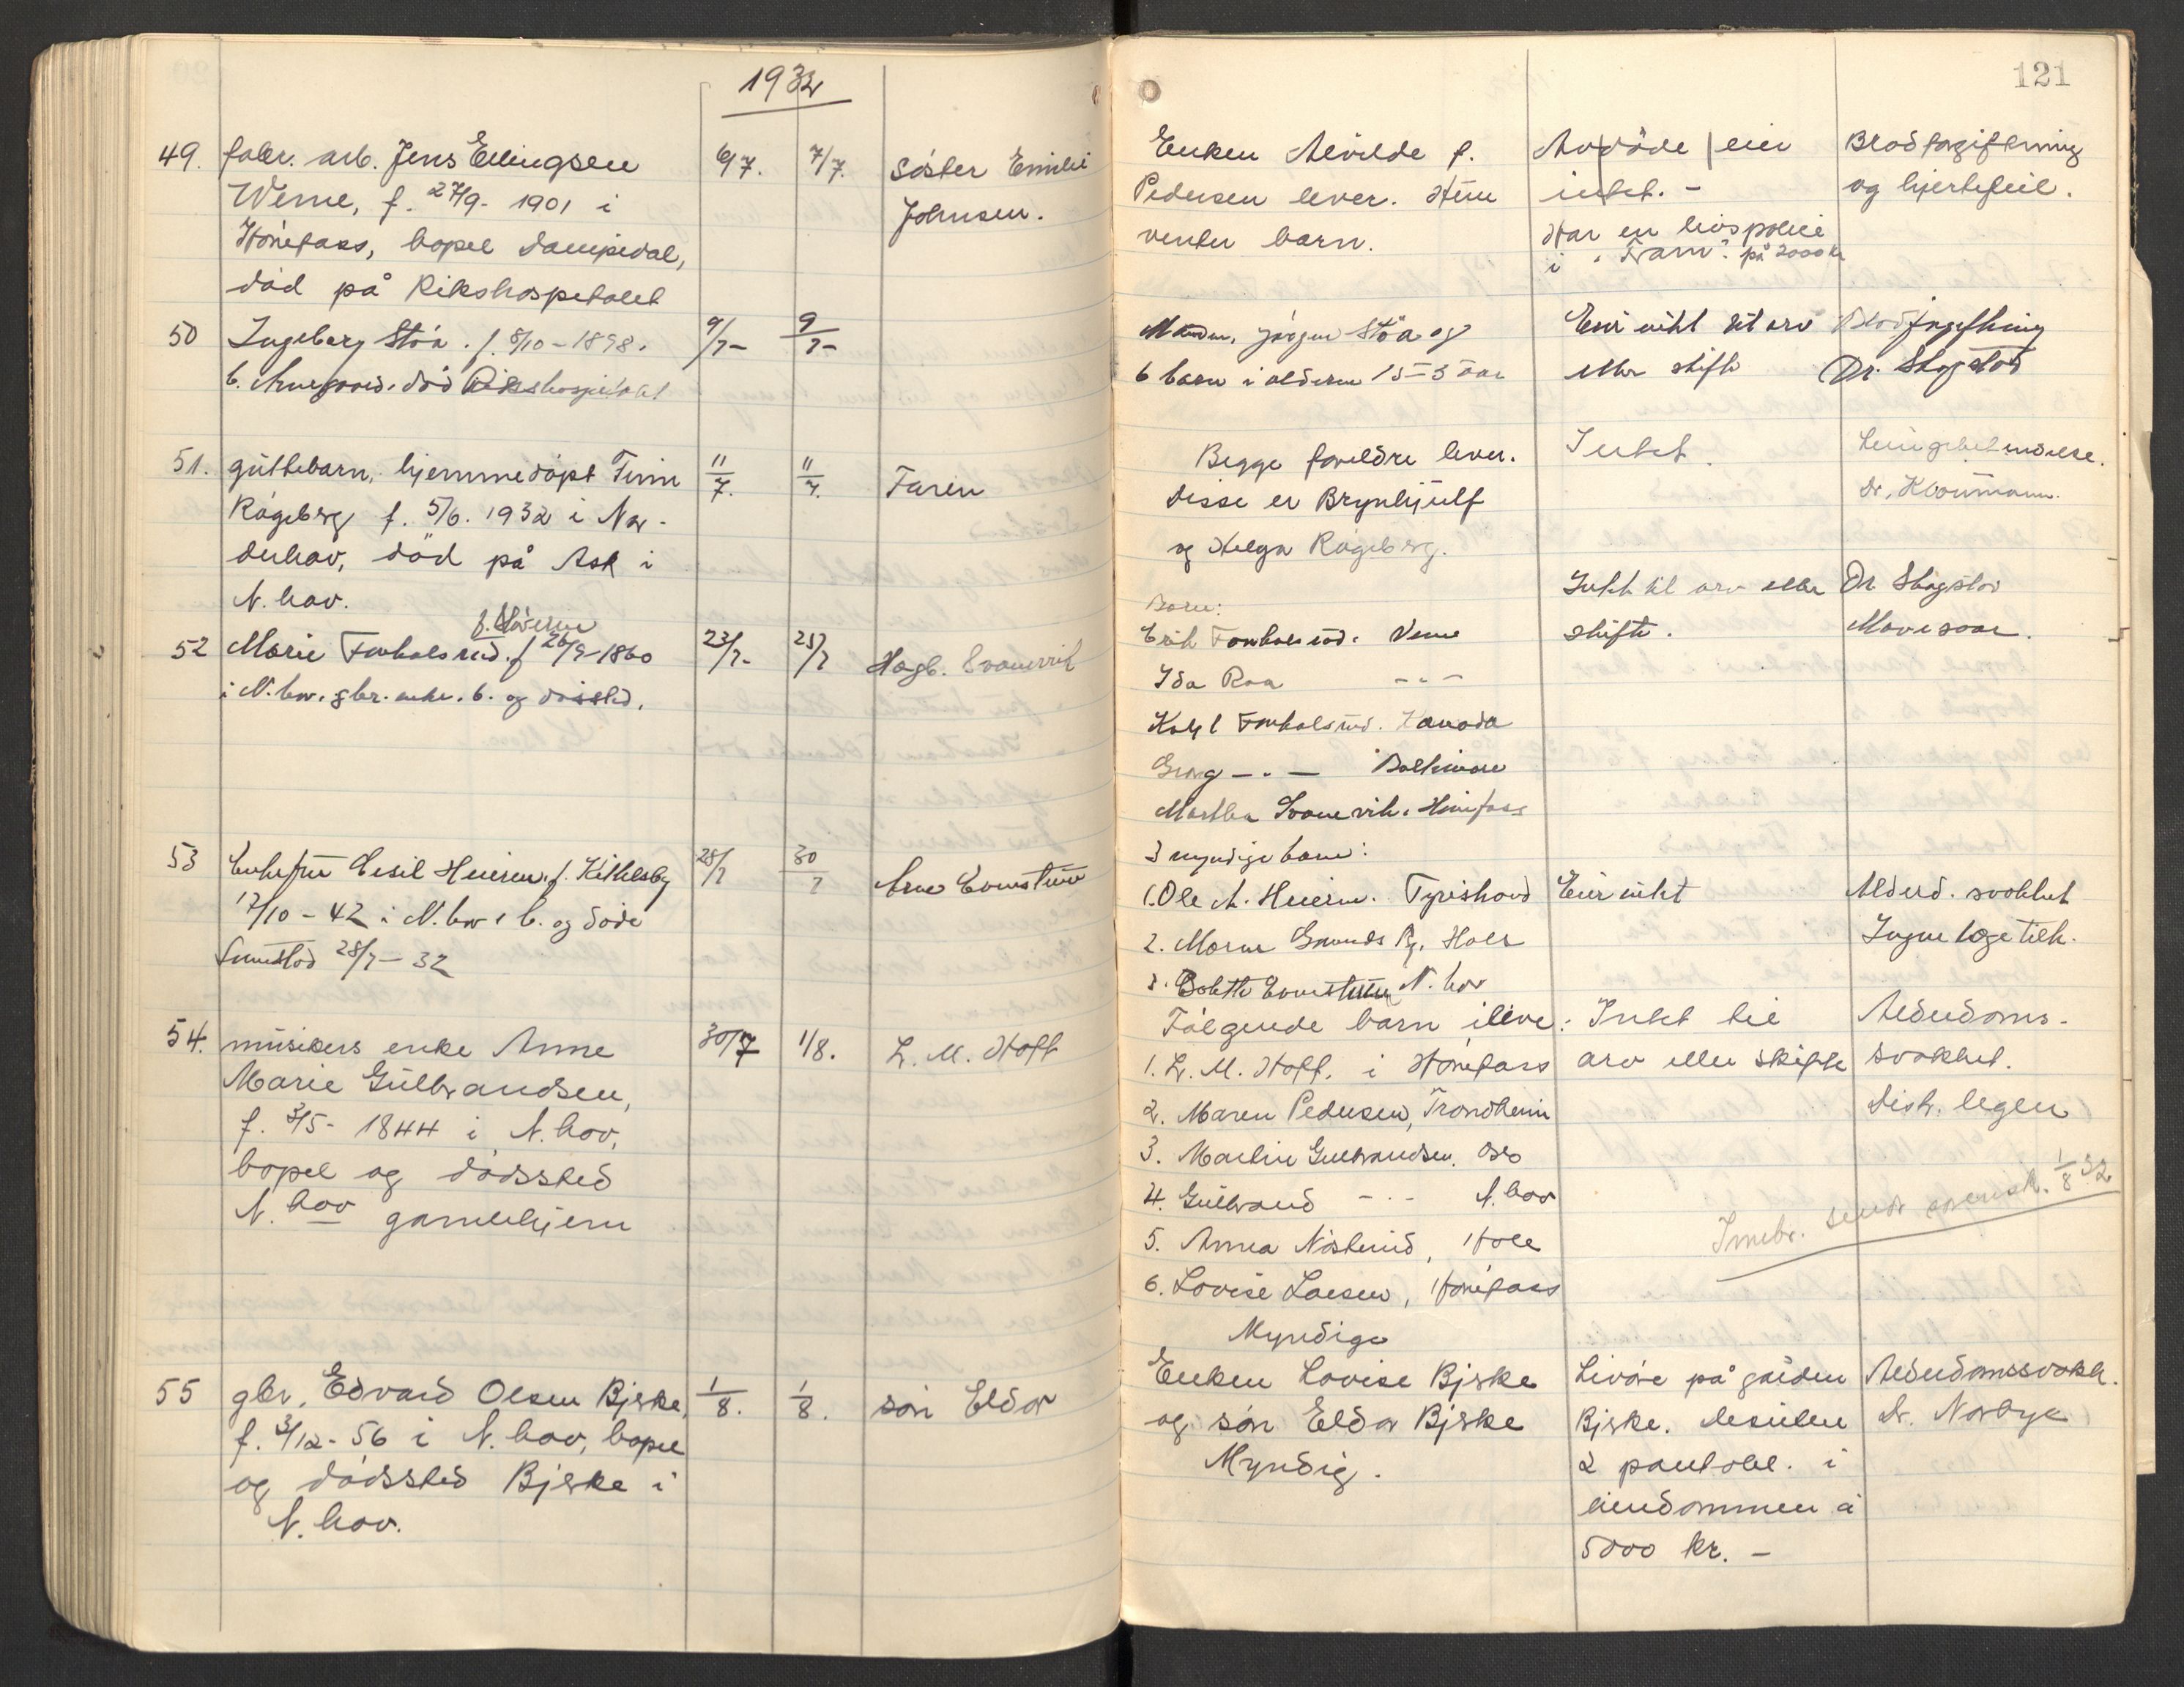 1932
121
49. fabr. arb. Jens Ellingsen
Werne, f. 27/9- 1901 i
Hönefoss, bopel
död på Rikshospitalet
6/7. 7/7.
Söster Emilie
Johnsen.
Enken Alvilde f.
Pedersen lever. Hun
venter barn.
Avdöde eier
intet. -
Har en livspolice
i "Fram" på 2000 kr
Blodforgiftning
og hjertefeil.
50 Ingeborg Stöa. f. 8/10 - 1898.
b. död Rikshospitalet
9/7- 9/7-
Manden, Jörgen Stöa og
6 barn i alderen 15-3 aar
Eier intet til arv
eller skifte
Blodforgiftning
Dr. Skogstad
51. guttebarn, hjemmedöpt Finn
Rågeberg f. 5/6. 1932 i Nor-
derhov, död på Ask i
N. hov.
11/7. 11/7.
Faren
Begge foreldre lever.
Disse er Brynhjulf
og Helga Rågeberg.
Intet.
Lungebetendelse.
Dr.
52 Marie Fonkalsrud. f 26/9-1860
i N. hov. gbr. enke. b. og dödssted.
23/7- 23/7
Hagb. Svanevik
Barn:
Erik Fonkalsrud. Veme
Ida Roa - " -
Karl Fonkalsrud. Kanada
Georg - " - Baltimore
Martha Svanevik. Hönefoss
Intet til arv eller
skifte.
Dr Skogstad
Mavesaar.
53 Enkefru Heieren. f. Kittelsby
17/10 - 42 i N. hov. b. og döde
28/7 - 32
28/7 30/7
Arne
3 myndige barn:
1. Ole A. Heieren. Tyristrand
2. Maren Hole
3. Bolette N. hov
Eier intet
Alderd. svakhet
Ingen læge tilk.
54. musikers enke Anne
Marie Gulbrandsen,
f. 3/5- 1844 i N. hov,
bopel og dödssted
N. hov gamlehjem
30/7 1/8.
L. M. Hoff
Fölgende barn ilive:
1. L. M. Hoff. i Hönefoss
2. Maren Pedersen, Trondheim
3. Martin Gulbrandsen, Oslo
4. Gulbrand - " - N. hov
5. Anna Nösterud, Hole
6. Lovise Larsen, Hönefoss
Myndige
Intet til
arv eller skifte
Alderdoms-
svakhet.
Distr. legen
Innber. sendt 1/8 32
55 gbr. Edvard Olsen Bjerke,
f. 3/12- 56 i N. hov, bopel
og dödssted Bjerke i
N. hov.
1/8. 1/8.
sön Eldor
Enken Lovise Bjerke
og sön Eldor Bjerke
Myndig.
Livöre på gården
Bjerke. Desuten
2 pantobl. i
eiendommen à
5000 kr. -
Alderdomssvakh.
Dr. Norbye